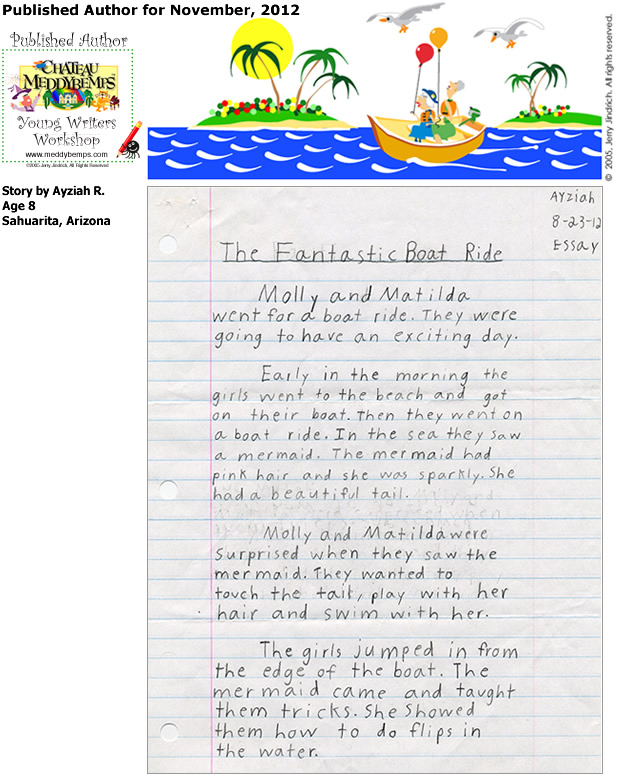 Published Author for November, 2012
Published Author
CHATEAU
MEDDYBEMPS
Young Writers
Workshop
www.meddybemps.com
©2005. Jerry Jindrich. All rights Reserved
© 2005, Jerry Jindrich. All rights reserved.
Story by Ayziah R.
Age 8
Sahuarita, Arizona
Ayziah
8-23-12
Essay
The Fantastic Boat Ride
Molly and Matilda
went for a boat ride. They were
going to have an exciting day.
Early in the morning the
girls went to the beach and got
on their boat. Then they went on
a boat ride. In the sea they saw
a mermaid. The mermaid had
pink hair and she was sparkly. She
had a beautiful tail.
Molly and Matilda were
surprised when they saw the
mermaid. They wanted to
touch the tail, play with her
hair and swim with her.
The girls jumped in from
the edge of the boat. The
mermaid came and taught
them tricks. She showed
them how to do flips in
the water.